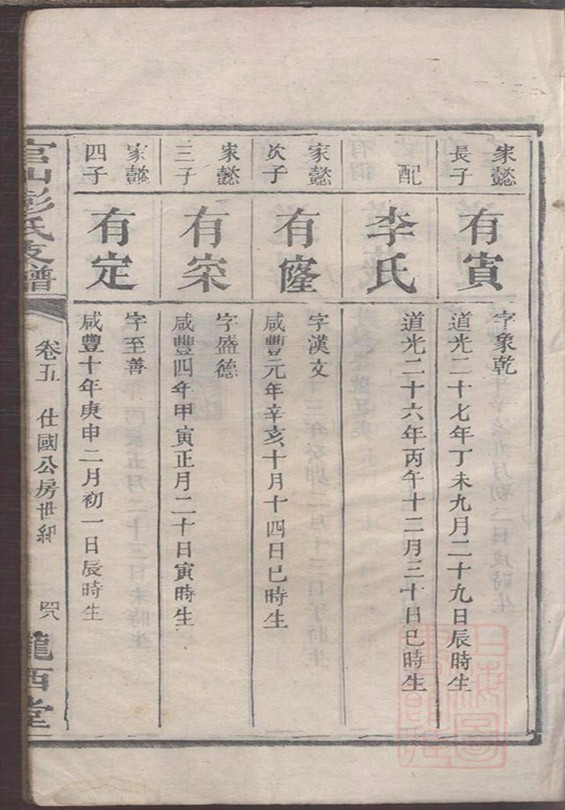 家懿
長子
有寅
字象乾
道光二十七年丁未九月二十九日辰時生
配
李氏
道光二十六年丙午十二月三十日巳時生
家懿
次子
有窿
字漢文
咸豐元年辛亥十月十四日巳時生
家懿
三子
有宷
字盛德
咸豐四年甲寅正月二十日寅時生
家懿
四子
有定
字至善
咸豐十年庚申二月初一日辰時生
官山彭氏支譜
卷五
仕國公房世紀
隴西堂